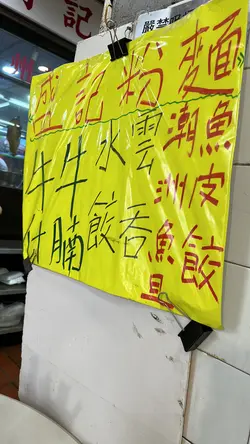 記
州
嚴禁吸
盛記粉麵
魚皮餃
潮洲魚旦
雲吞
水餃
牛腩
牛